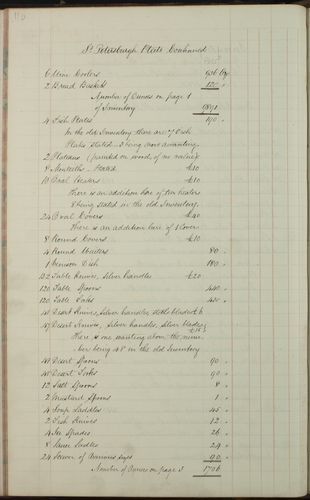 110
St. Petersburgh Plate Continued
6 Wine Coolers 936 Oze
2 Bread Baskets 120 "
Number of Ounces on page 1
of Inventory 1891
4 Fish Plates 190 "
In the old Inventory there are 5 Fish
Plates stated - 1 being now wanting.
2 Plateaus (painted on wood, of no value)
8 Monteiths - Plated £10
10 Oval Heaters £10
There is an addition here of two heaters
8 being stated in the old Inventory.
24 Oval Covers £40
There is an addition here of 1 Cover
8 Round Covers £10
4 Round Waiters 80 "
1 Venison Dish 180 "
132 Table Knives, Silver handles £20
120 Table Spoons 440 "
120 Table Forks 440 "
48 Desert Knives, Silver handles, steel blades £6
47 Desert Knives, Silver handles, Silver blades £15
There is one wanting above the num-
ber being 48 in the old Inventory
48 Desert Spoons 90 "
48 Desert Forks 90 "
12 Salt Spoons 8 "
2 Mustard Spoons 1 "
4 Soup Laddles 45 "
2 Fish Knives 12 "
4 Ice Spades 26 "
8 Sauce Ladles 24 "
24 90 "
Number of Ounces on page 2 1706